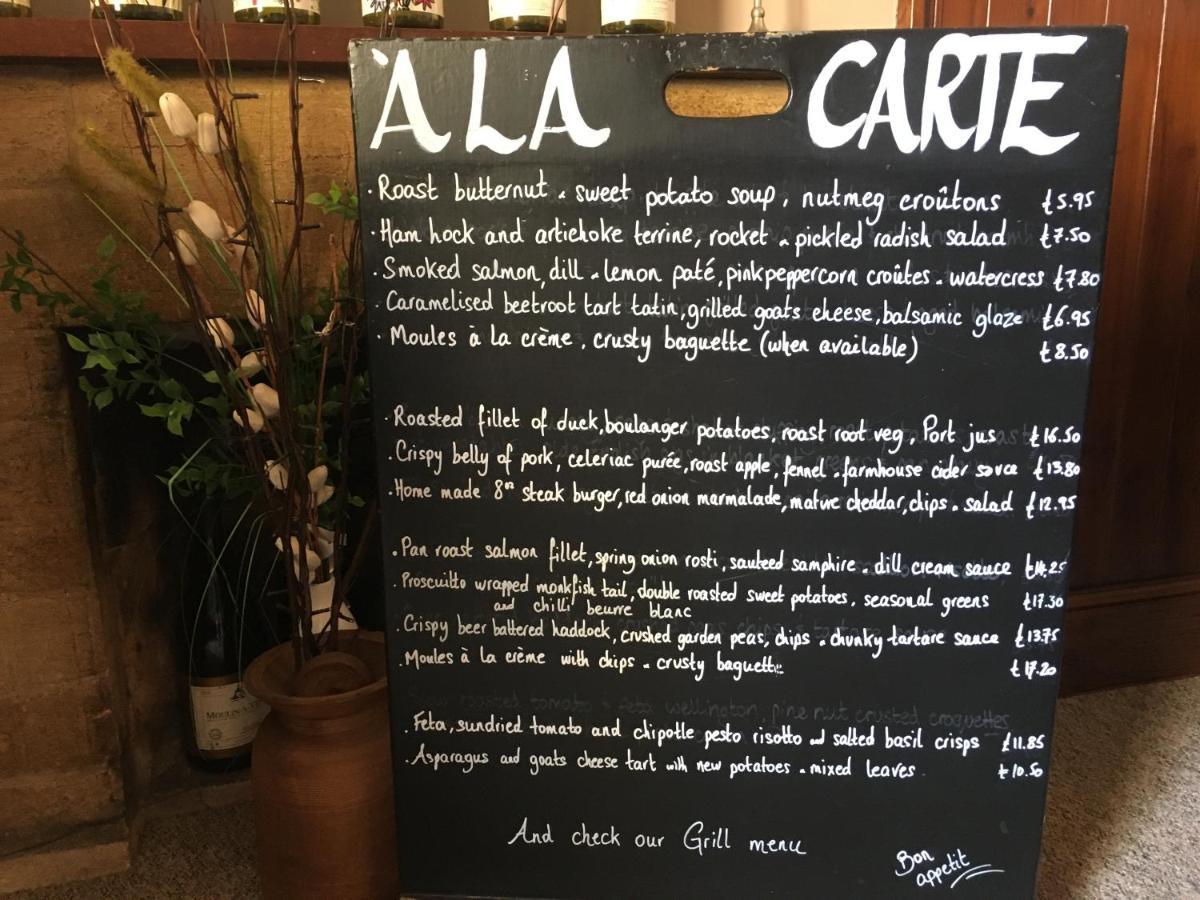 À LA CARTE
· Roast butternut & sweet potato soup, nutmeg croûtons £5.95
· Ham hock and artichoke terrine, rocket & pickled radish salad £7.50
· Smoked salmon, dill & lemon paté, pink peppercorn croûtes & watercress £7.80
· Caramelised beetroot tart tatin, grilled goats cheese, balsamic glaze £6.95
· Moules à la crème, crusty baguette (when available) £8.50
· Roasted fillet of duck, boulanger potatoes, roast root veg, Port jus £16.50
· Crispy belly of pork, celeriac purée, roast apple, fennel & farmhouse cider sauce £13.80
· Home made 8" steak burger, red onion marmalade, mature cheddar, chips & salad £12.95
· Pan roast salmon fillet, spring onion rosti, sauteed samphire & dill cream sauce £14.25
· Proscuitto wrapped monkfish tail, double roasted sweet potatoes, seasonal greens £17.30
and chilli beurre blanc
· Crispy beer battered haddock, crushed garden peas, chips & chunky tartare sauce £13.75
· Moules à la crème with chips & crusty baguette £17.20
· Feta, sundried tomato and chipotle pesto risotto and salted basil crisps £11.85
· Asparagus and goats cheese tart with new potatoes & mixed leaves £10.50
And check our Grill menu
Bon
appetit